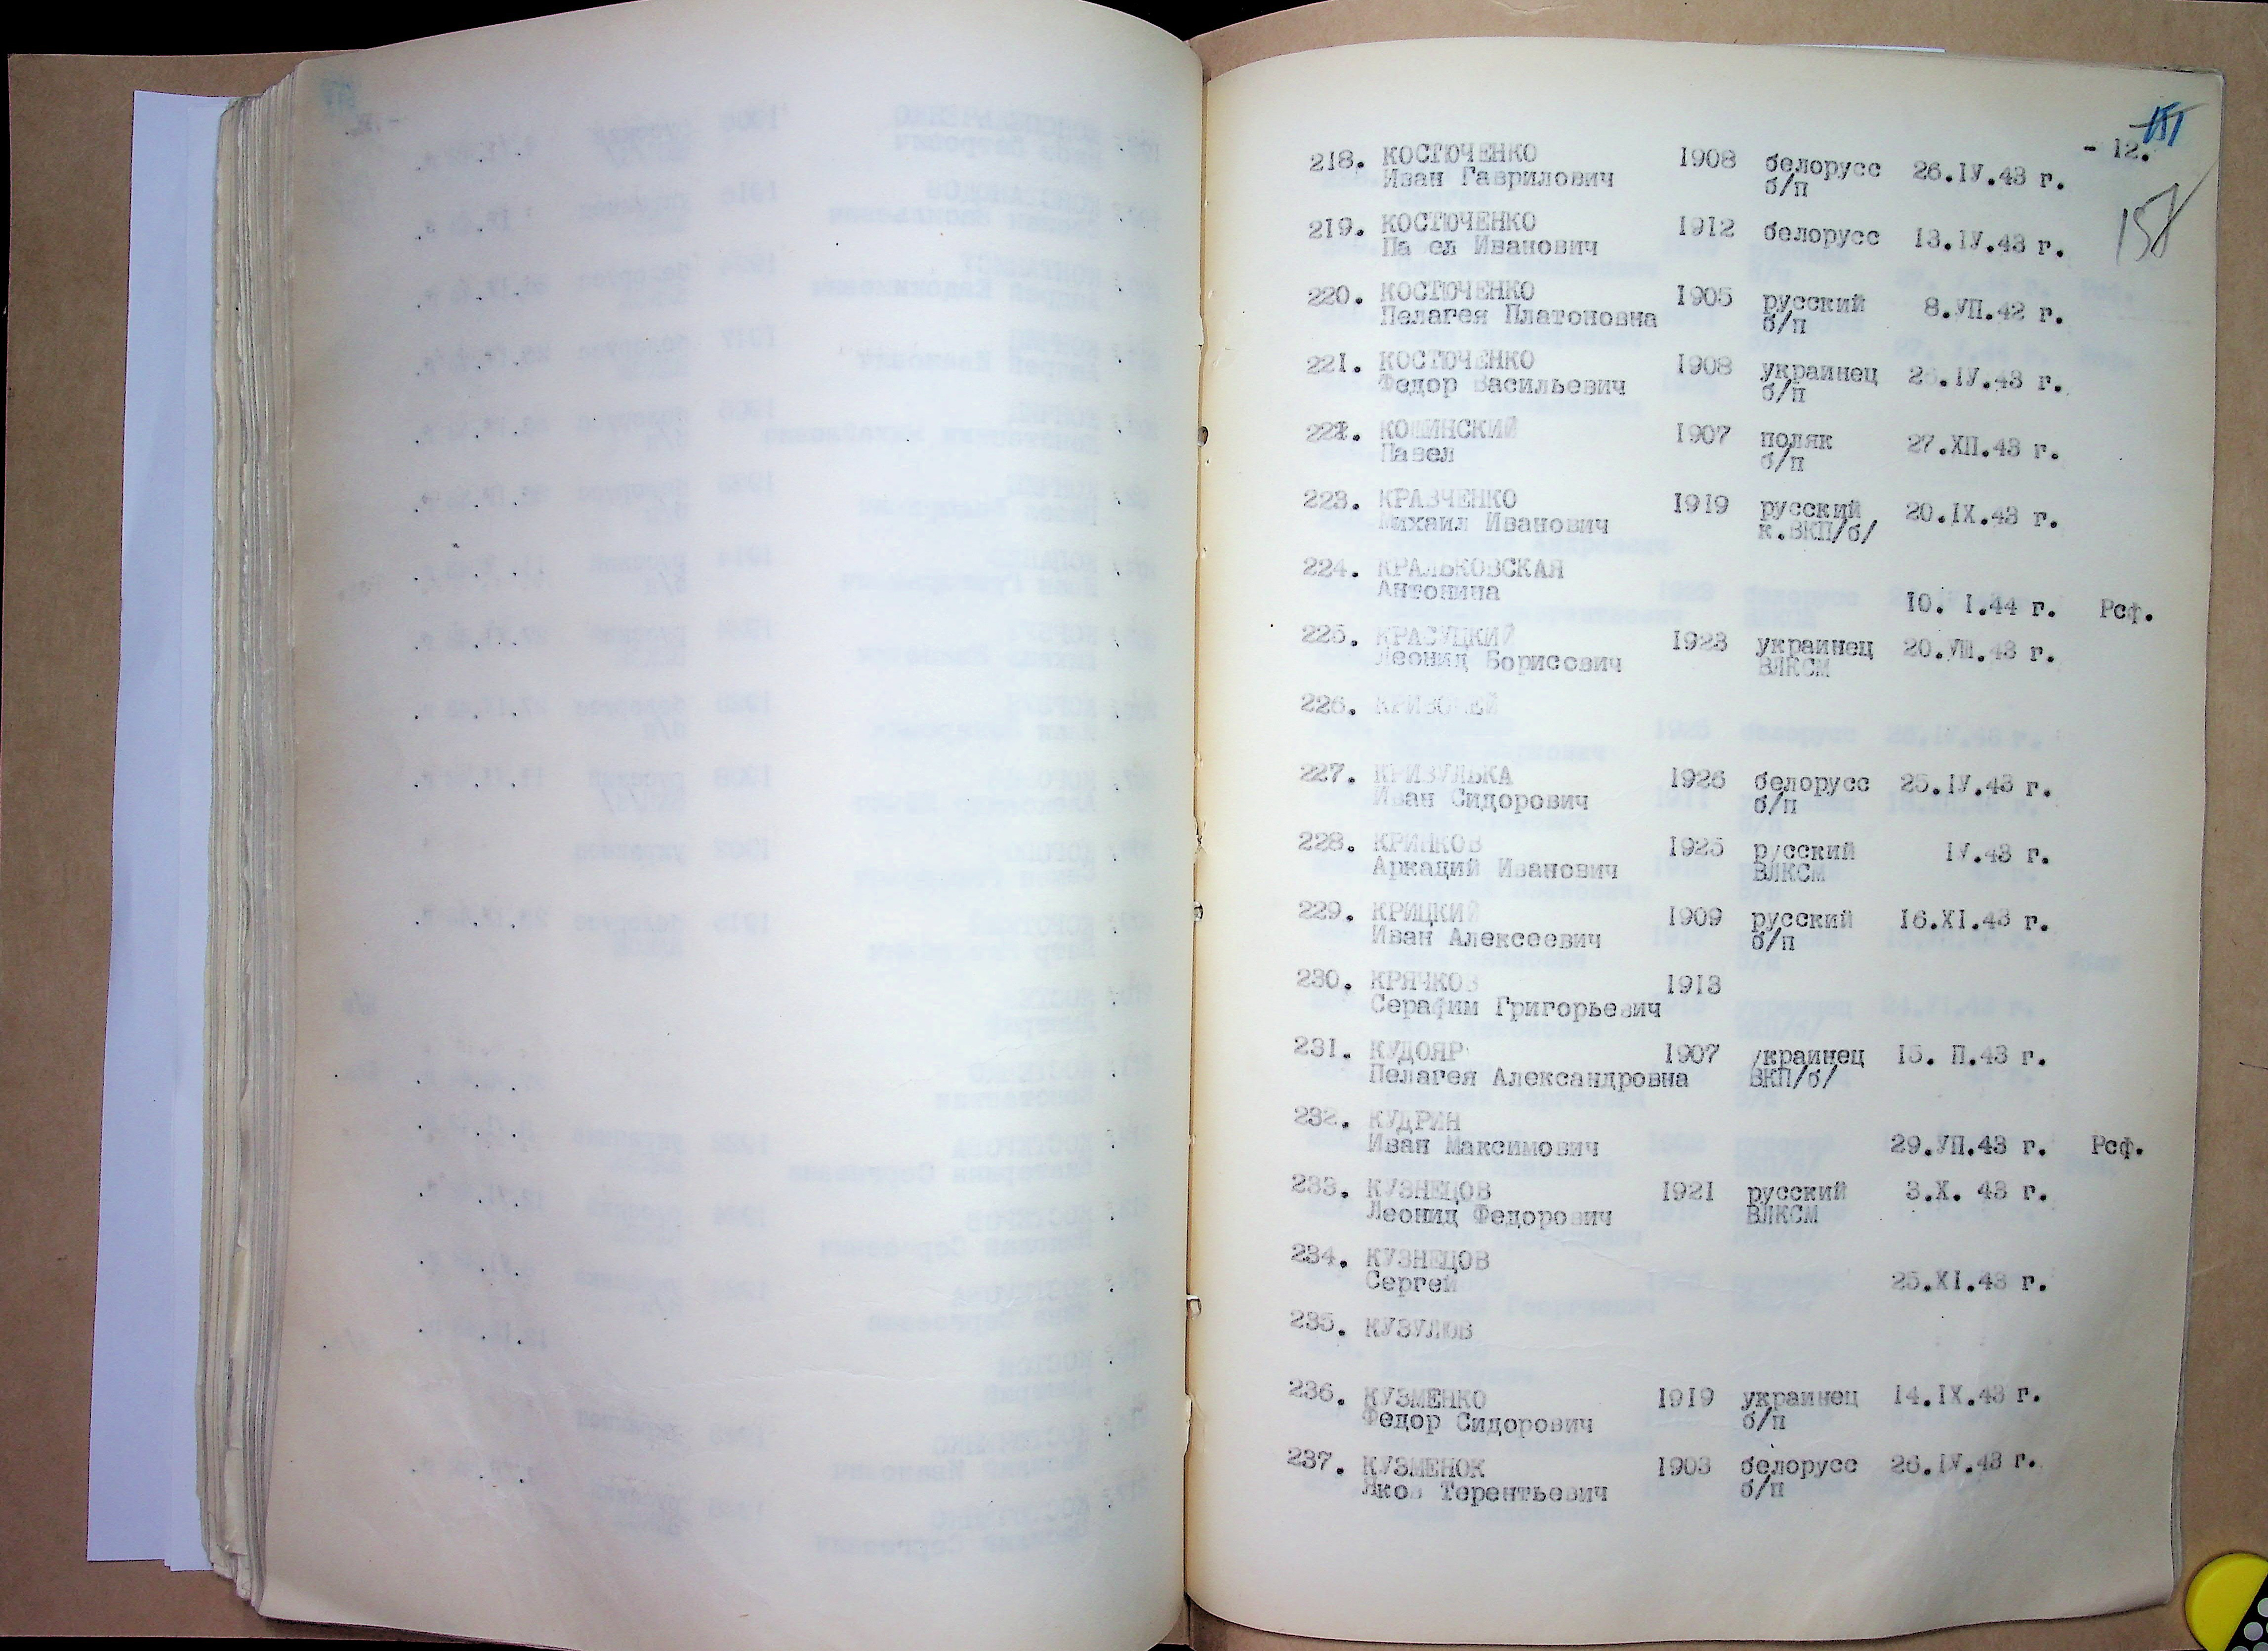 - 12.
158
218. КОСТЮЧЕНКО 1908 белорусс 26.IУ.43 г.
Иван Гаврилович б/п
219. КОСТЮЧЕНКО 1912 белорусс 13.IУ.43 г.
Па ел Иванович
220. КОСТЮЧЕНКО 1905 русский 8.УП.42 г.
Пелагея Платоновна б/п
221. КОСТЮЧЕНКО 1908 украинец 26.IУ.43 г.
Федор Васильевич б/п
222. КОШИНСКИЙ 1907 поляк 27.ХП.43 г.
Павел б/п
223. КРАВЧЕНКО 1919 русский 20.IХ.43 г.
Михаил Иванович к.ВКП/б/
224. КРАЛЬКОВСКАЯ
Антонина 10. I.44 г. Рсф.
225. КРАСУЦКИЙ 1923 украинец 20.УШ.43 г.
Леонид Борисович ВЛКСМ
226. КРИВОШЕЙ
227. КРИВУЛЬКА 1926 белорусс 25.IУ.43 г.
Иван Сидорович б/п
228. КРИНКОВ 1925 русский IУ.43 г.
Аркадий Иванович ВЛКСМ
229. КРИЦКИЙ 1909 русский 16.ХI.43 г.
Иван Алексеевич б/п
230. КРЯЧКОВ 1913
Серафим Григорьевич
231. КУДОЯР 1907 украинец 15. П.43 г.
Пелагея Александровна ВКП/б/
232. КУДРИН
Иван Максимович 29.УП.43 г. Рсф.
233. КУЗНЕЦОВ 1921 русский 3.Х. 43 г.
Леонид Федорович ВЛКСМ
234. КУЗНЕЦОВ
Сергей 25.ХI.43 г.
235. КУЗУЛОВ
236. КУЗМЕНКО 1919 украинец 14.IХ.43 г.
Федор Сидорович б/п
237. КУЗМЕНОК 1903 белорусс 26.IУ.43 г.
Яков Терентьевич б/п